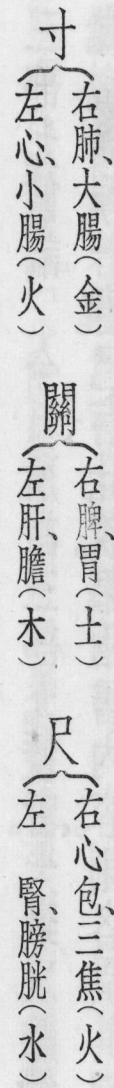 寸
右肺、大腸（金）
左心、小腸（火）
關
右脾、胃（土）
左肝、膽（木）
尺
右心包、三焦（火）
左　腎、膀胱（水）